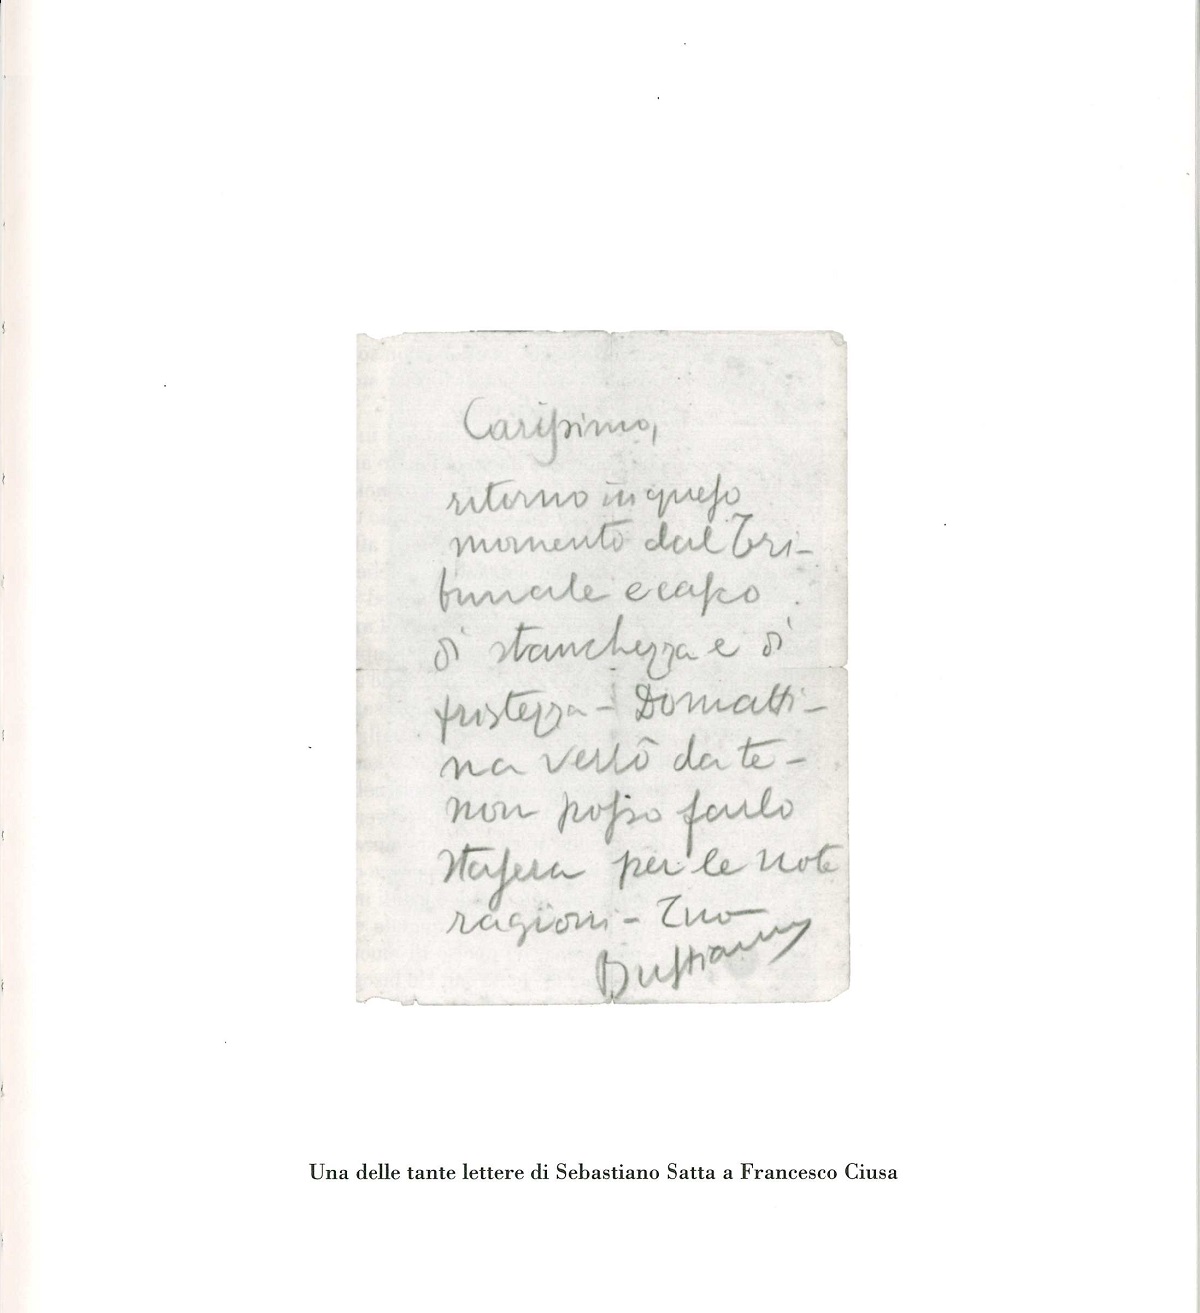 Carissimo,
ritorno in questo
momento dal Tri-
bunale e casco
di stanchezza e di
tristezza – Domatti-
na verrò da te –
non posso farlo
stasera per le note
ragioni – Tuo
Bustianu
Una delle tante lettere di Sebastiano Satta a Francesco Ciusa